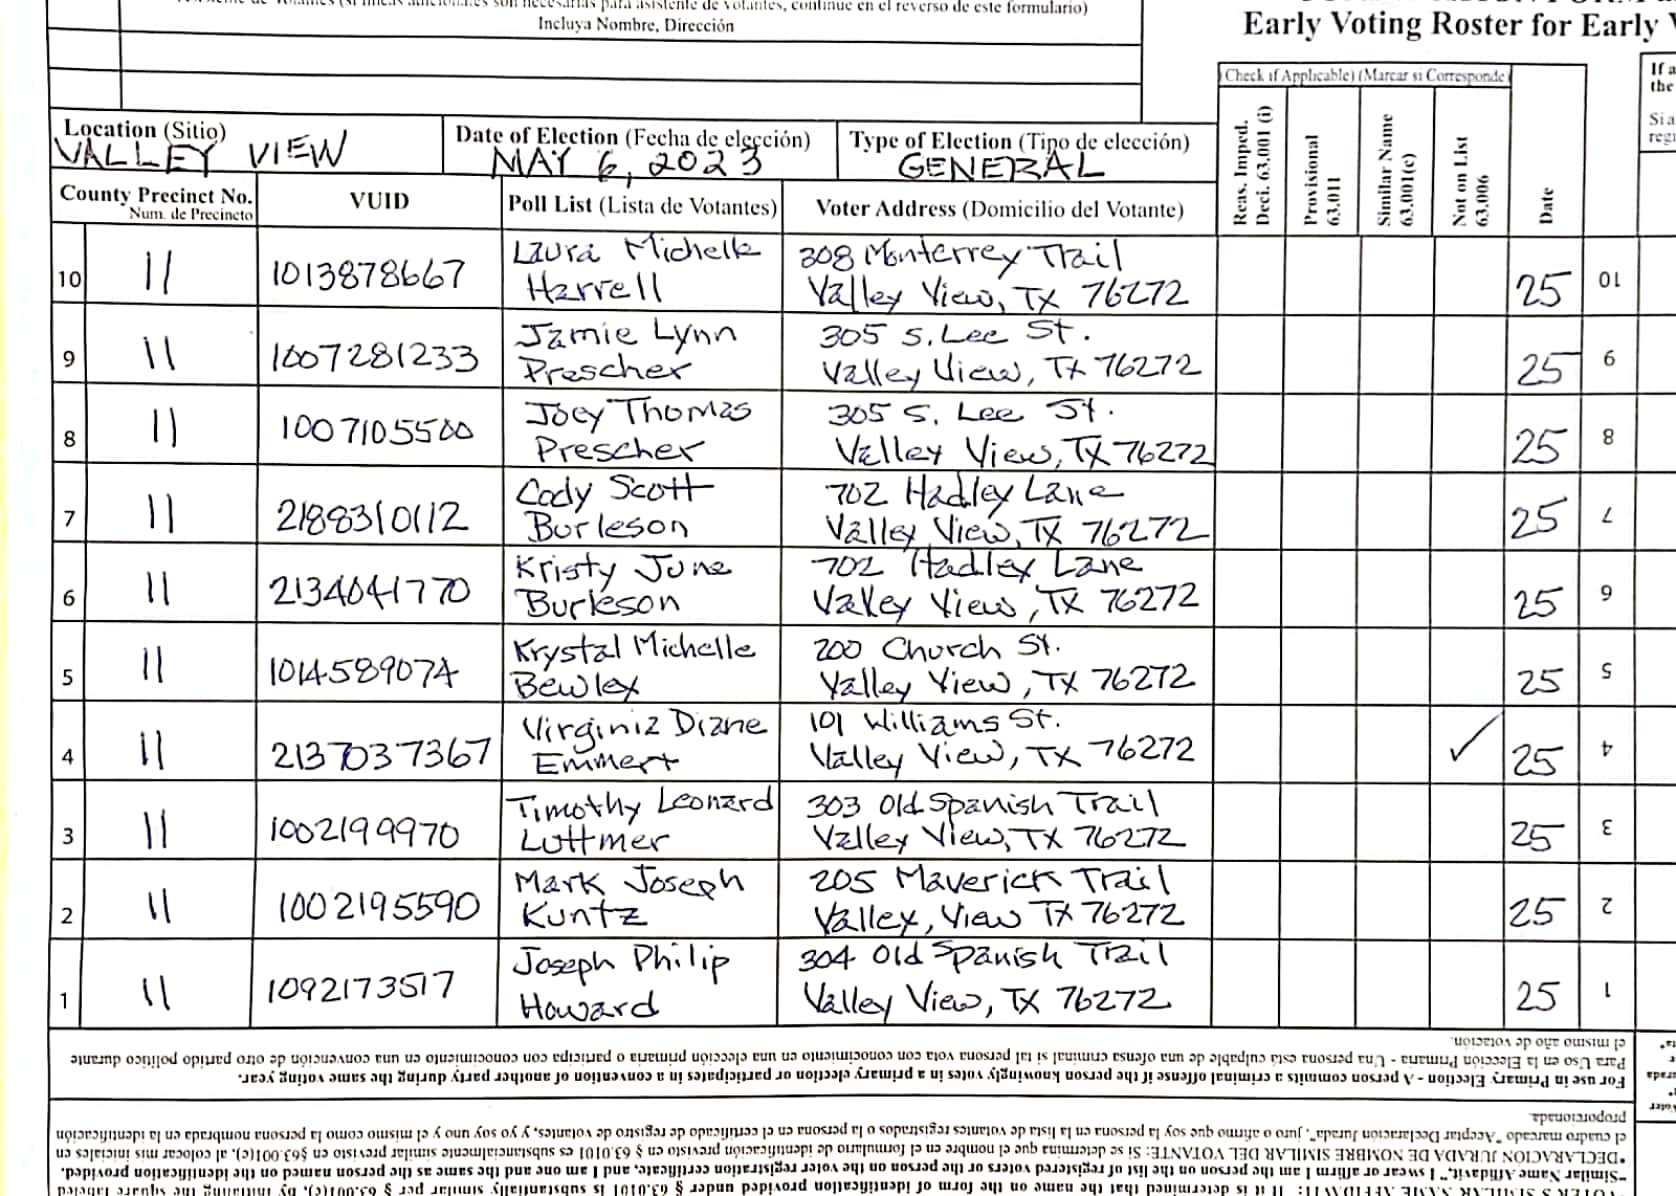 (si líneas adicionales son necesarias para asistente de votantes, continue en el reverso de este formulario)
Incluya Nombre, Dirección
Early Voting Roster for Early
Check if Applicable) (Marcar si Corresponde
If a
the
Si a
regi
Location (Sitio)
VALLEY VIEW
Date of Election (Fecha de elección)
MAY 6, 2023
Type of Election (Tipo de elección)
GENERAL
County Precinct No.
Num. de Precincto
VUID
Poll List (Lista de Votantes)
Voter Address (Domicilio del Votante)
Reas. Imped.
Deci. 63.001 (i)
Provisional
63.011
Similar Name
63.001(c)
Not on List
63.006
Date
10 11 1013878667 Laura Michelle Harrell 308 Monterrey Trail Valley View, TX 76272 25 10
9 11 1007281233 Jamie Lynn Prescher 305 S. Lee St. Valley View, TX 76272 25 9
8 11 1007105500 Joey Thomas Prescher 305 S. Lee St. Valley View, TX 76272 25 8
7 11 2188310112 Cody Scott Burleson 702 Hadley Lane Valley View, TX 76272 25 7
6 11 2134041770 Kristy June Burleson 702 Hadley Lane Valley View, TX 76272 25 6
5 11 1014589074 Krystal Michelle Bewley 200 Church St. Valley View, TX 76272 25 5
4 11 2137037367 Virginia Diane Emmert 101 Williams St. Valley View, TX 76272 ✓ 25 4
3 11 1002199970 Timothy Leonard Luttmer 303 Old Spanish Trail Valley View, TX 76272 25 3
2 11 1002195590 Mark Joseph Kuntz 205 Maverick Trail Valley, View TX 76272 25 2
1 11 1092173517 Joseph Philip Howard 304 Old Spanish Trail Valley View, TX 76272 25 1
el mismo año de votación.
Para Uso en la Elección Primaria - Una persona está culpable de una ofensa criminal si tal persona vota con conocimiento en una elección primaria o participa con conocimiento en una convención de otro partido político durante
For use in Primary Election - A person commits a criminal offense if the person knowingly votes in a primary election or participates in a convention of another party during the same voting year.
proporcionada.
el cuadro marcado "Aceptar Declaración Jurada", juro o afirmo que soy la persona en la lista de votantes registrados o la persona en el certificado de registro de votantes, y yo soy uno y el mismo como la persona nombrada en la identificación
*DECLARACION JURADA DE NOMBRE SIMILAR DEL VOTANTE: Si se determina que el nombre en el formulario de identificación previsto en § 63.0101 es substancialmente similar previsto en §63.001(c), al colocar mis iniciales en
"Similar Name Affidavit," I swear or affirm I am the person on the list of registered voters or the person on the voter registration certificate, and I am one and the same as the person named on the identification provided.
SIMILAR NAME AFFIDAVIT: If it is determined that the name on the form of identification provided under § 63.0101 is substantially similar per § 63.001(c), by initialing the square labeled